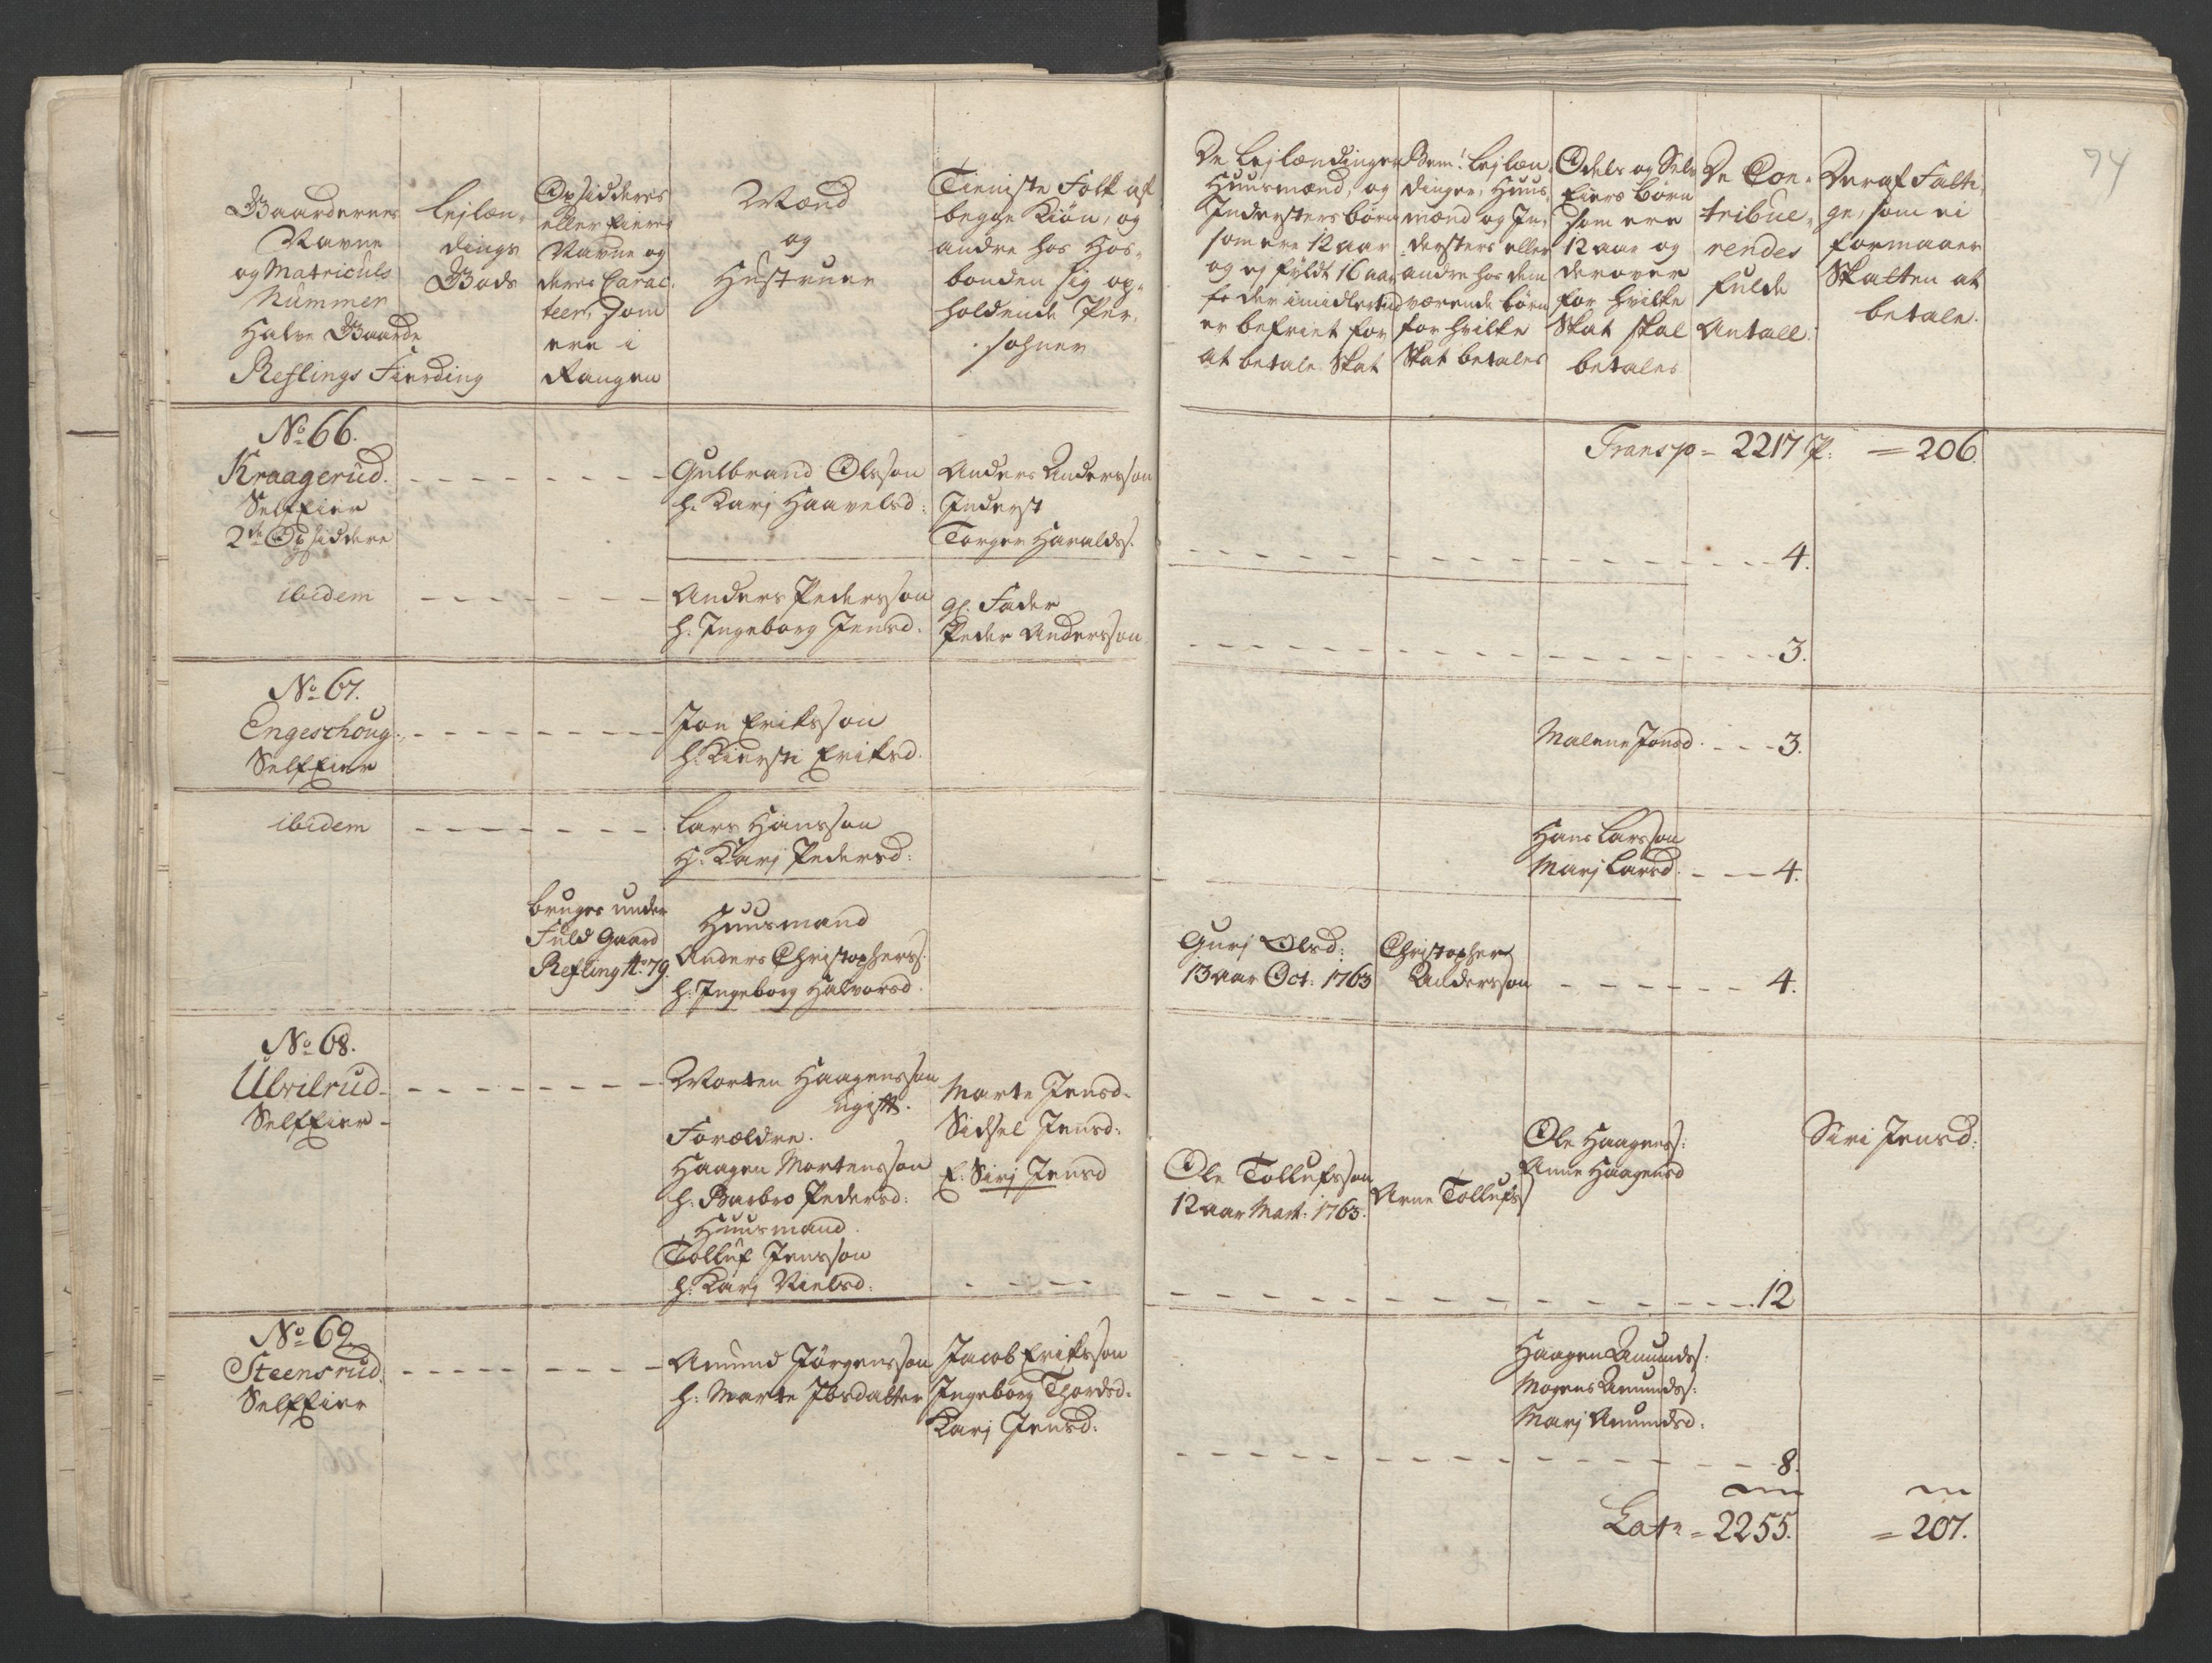 Gaardernes
Navne
og Matriculs
Nummer
Halve Gaarde
Reflings Fierding
Lejlæn-
dings
Bøds
Opsidderes
eller Eieres
Navne og
deres Carac-
teer, som
ere i
Rangen
Mænd
og
Hustruer
Tieniste Folk af
begge Kiøn, og
andre hos Hos-
bonden sig op-
holdende Per-
sohner
De Lejlændinger
Huusmænd, og
Indersters børn
som ere 12 aar
og ej fyldt 16 aar
so der imidlertid
er befriet for
at betale Skat
Bem.te Lejlæn-
dinger, Huus-
mænd og In-
dersters eller
andre hos dem
værende børn
for hvilke
Skat betales
Odels og Selv
Eiers børn
som ere
12 aar og
derover
for hvilke
Skat skal
betales
De Con-
tribue-
rendes
fulde
Antall:
Deraf Fatti-
ge, som ei
formaaer
Skatten at
betale.
74
Transp = 2217 P: = 206.
No 66.
Kraagerud.
SelfEier
2de Opsiddere
Gulbrand Olsson
h. Karj Haavelsd:
Anders Andersson
Inderst
Torger Haralds.
4.
ibidem
Anders Pedersson
h. Ingeborg Jensd.
gl. Fader
Peder Andersson
3.
No 67.
Engeschoug.
SelfEier
Jon Eriksson
h. Kiersti Eriksd.
Malene Jonsd. - - - 3.
ibidem
Lars Hansson
H. Karj Pedersd:
Hans Larsson
Marj Larsd. - - - 4.
bruges under
Fuld Gaard
Refling No 79.
Huusmand
Anders Christophers.
h. Ingeborg Halvorsd.
Gurj Olsd:
13 aar Oct: 1763
Christopher
Andersson
4.
No 68.
Ulvilrud
SelfEier
Morten Haagensson
ugift.
Forældre.
Haagen Mortensson
h. Barbro Pedersd:
Huusmand.
Tolluf Jensson
h. Karj Nielsd:
Marte Jensd.
Sidsel Jensd:
F. Sirj Jensd
Ole Tollufsson
12 aar Mart: 1763.
Arne Tollufs
Ole Haagens:
Anne Haagensd
Siri Jensd:
12
No 69
Steensrud.
SelfEier
Amund Jörgensson
h: Marte Ibsdatter
Jacob Eriksson
Ingeborg Thordsd:
Karj Jensd:
Haagen Amunds:
Mogens Amunds:
Marj Amundsd:
8.
Lat: = 2255. = 207.